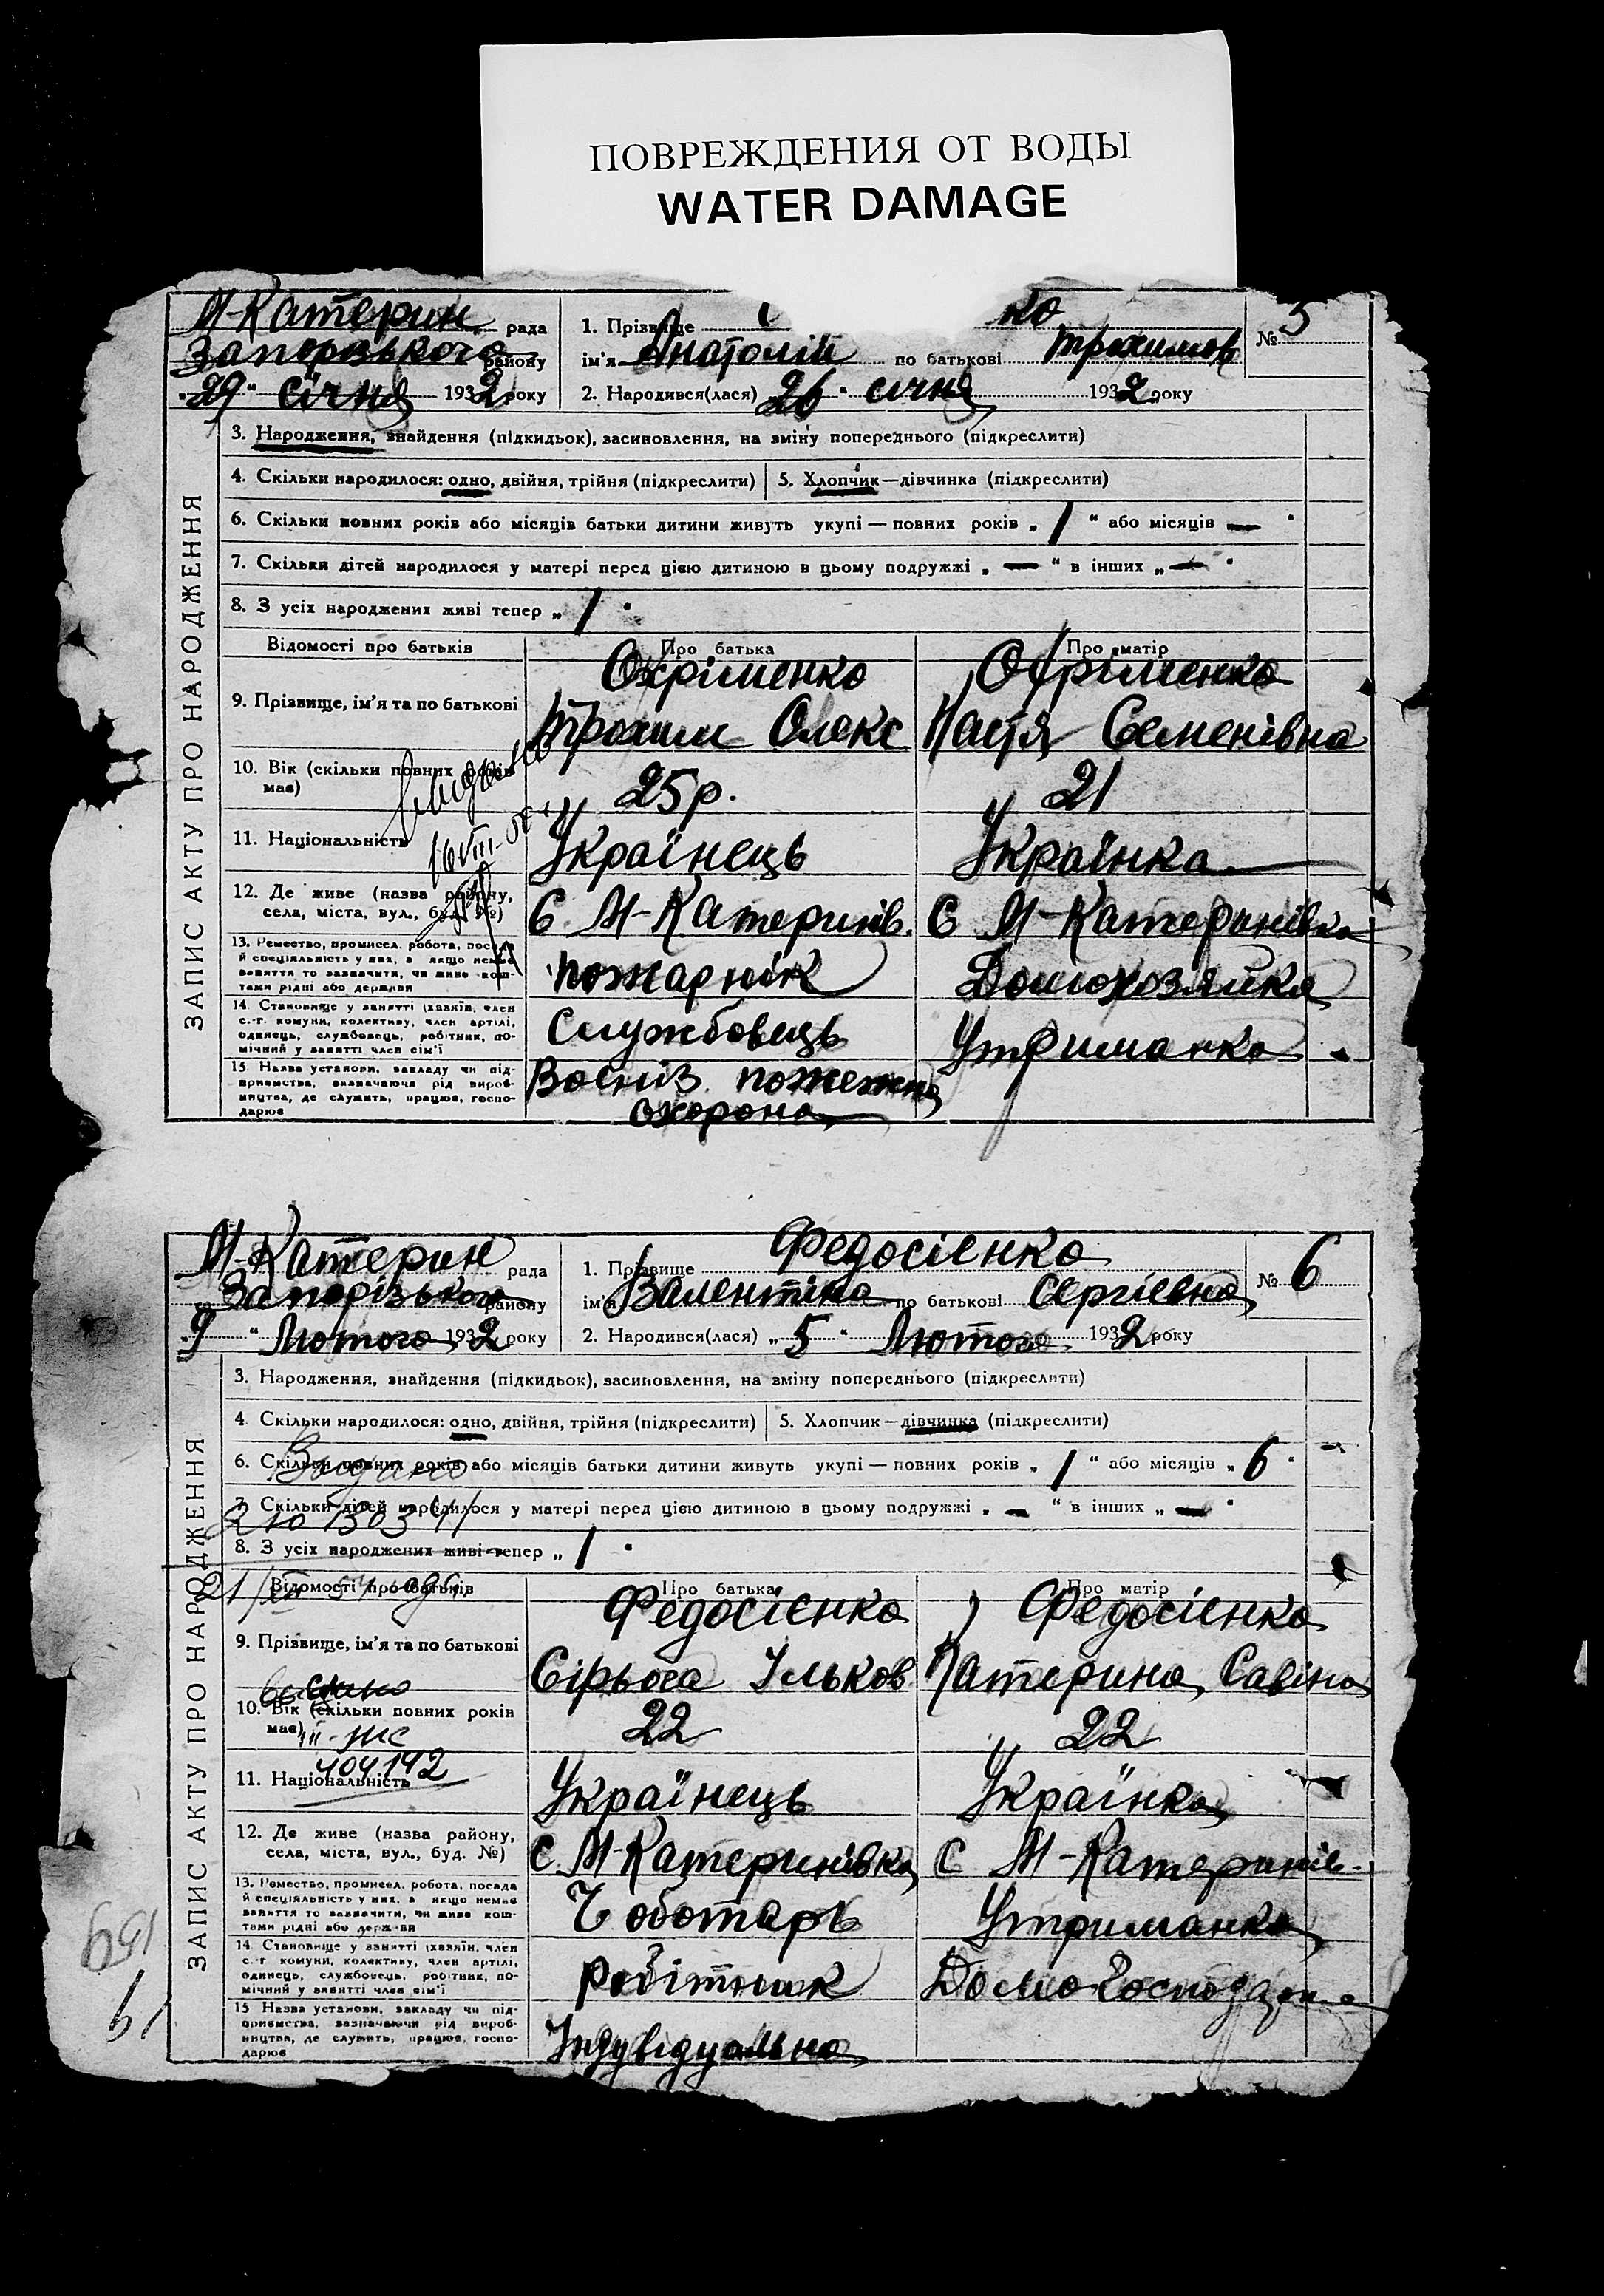 ПОВРЕЖДЕНИЯ ОТ ВОДЫ
WATER DAMAGE
М-Катерин рада
Запорізького району
„29“ січня 1932 року
1. Прізвище ко
ім'я Анатолій по батькові Трохимов
№ 5
2. Народився(лася) 26 „ січня 1932 року
ЗАПИС АКТУ ПРО НАРОДЖЕННЯ
3. Народження, знайдення (підкидьок), засиновлення, на зміну попереднього (підкреслити)
4. Скільки народилося: одно, двійня, трійня (підкреслити) 5. Хлопчик—дівчинка (підкреслити)
6. Скільки повних років або місяців батьки дитини живуть укупі — повних років „ 1 “ або місяців — “
7. Скільки дітей народилося у матері перед цією дитиною в цьому подружжі „ — “ в інших „ — “
8. З усіх народжених живі тепер „ 1 “
Відомості про батьків Про батька Про матір
9. Прізвище, ім'я та по батькові
Охріменко Охріменко
Трохим Олекс Настя Семенівна
10. Вік (скільки повних років має) 25 р. 21
16 VIII
11. Національність Українець Українка
12. Де живе (назва району, села, міста, вул., буд. №) С. М-Катеринів. С М-Катеринівка
13. Ремество, промисел, робота, посада
й спеціяльність у них, а якщо немає
заняття то зазначити, чи живе кош-
тами рідні або держави
пожарнік Домохозяйка
14. Становище у занятті (хазяїн, член
с.-г. комуни, колективу, член артілі,
одинець, службовець, робітник, по-
мічний у занятті член сім'ї
Службовець Утриманка
15. Назва установи, закладу чи під-
приємства, зазначаючи рід вироб-
ництва, де служить, працює, госпо-
дарює
Воєніз. пожежна
охорона
М-Катерин рада
Запорізького району
„9“ Лютого 1932 року
1. Прізвище Федосієнко
ім'я Валентіна по батькові Сергіевна
№ 6
2. Народився(лася) „ 5 “ Лютого 1932 року
ЗАПИС АКТУ ПРО НАРОДЖЕННЯ
3. Народження, знайдення (підкидьок), засиновлення, на зміну попереднього (підкреслити)
4. Скільки народилося: одно, двійня, трійня (підкреслити) 5. Хлопчик—дівчинка (підкреслити)
6. Скільки повних років або місяців батьки дитини живуть укупі — повних років „ 1 “ або місяців „ 6 “
Выдано
7. Скільки дітей народилося у матері перед цією дитиною в цьому подружжі „ — “ в інших „ — “
8. З усіх народжених живі тепер „ 1 “
Відомості про батьків Про батька Про матір
9. Прізвище, ім'я та по батькові
Федосієнко Федосієнко
Сірьога Ільков Катерина Савіна
10. Вік (скільки повних років має) 22 22
404142
11. Національність Українець Українка
12. Де живе (назва району, села, міста, вул., буд. №) С. М-Катеринівка С М-Катеринів.
13. Ремество, промисел, робота, посада
й спеціяльність у них, а якщо немає
заняття то зазначити, чи живе кош-
тами рідні або держави
Чоботарь Утриманка
14. Становище у занятті (хазяїн, член
с.-г. комуни, колективу, член артілі,
одинець, службовець, робітник, по-
мічний у занятті член сім'ї
робітник Домогосподарка
15. Назва установи, закладу чи під-
приємства, зазначаючи рід вироб-
ництва, де служить, працює, госпо-
дарює
Індувідуально
159